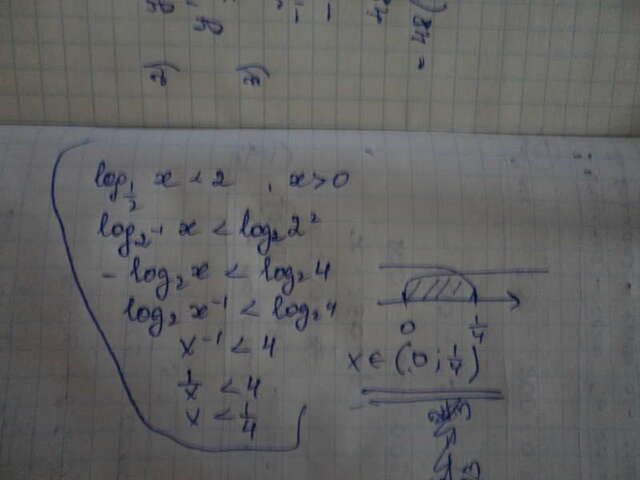 = 48
log_{1/2} x < 2 , x > 0
log_{2^{-1}} x < log_2 2^2
- log_2 x < log_2 4
log_2 x^{-1} < log_2 4
x^{-1} < 4
1/x < 4
x < 1/4
0 1/4
x ∈ (0; 1/4)